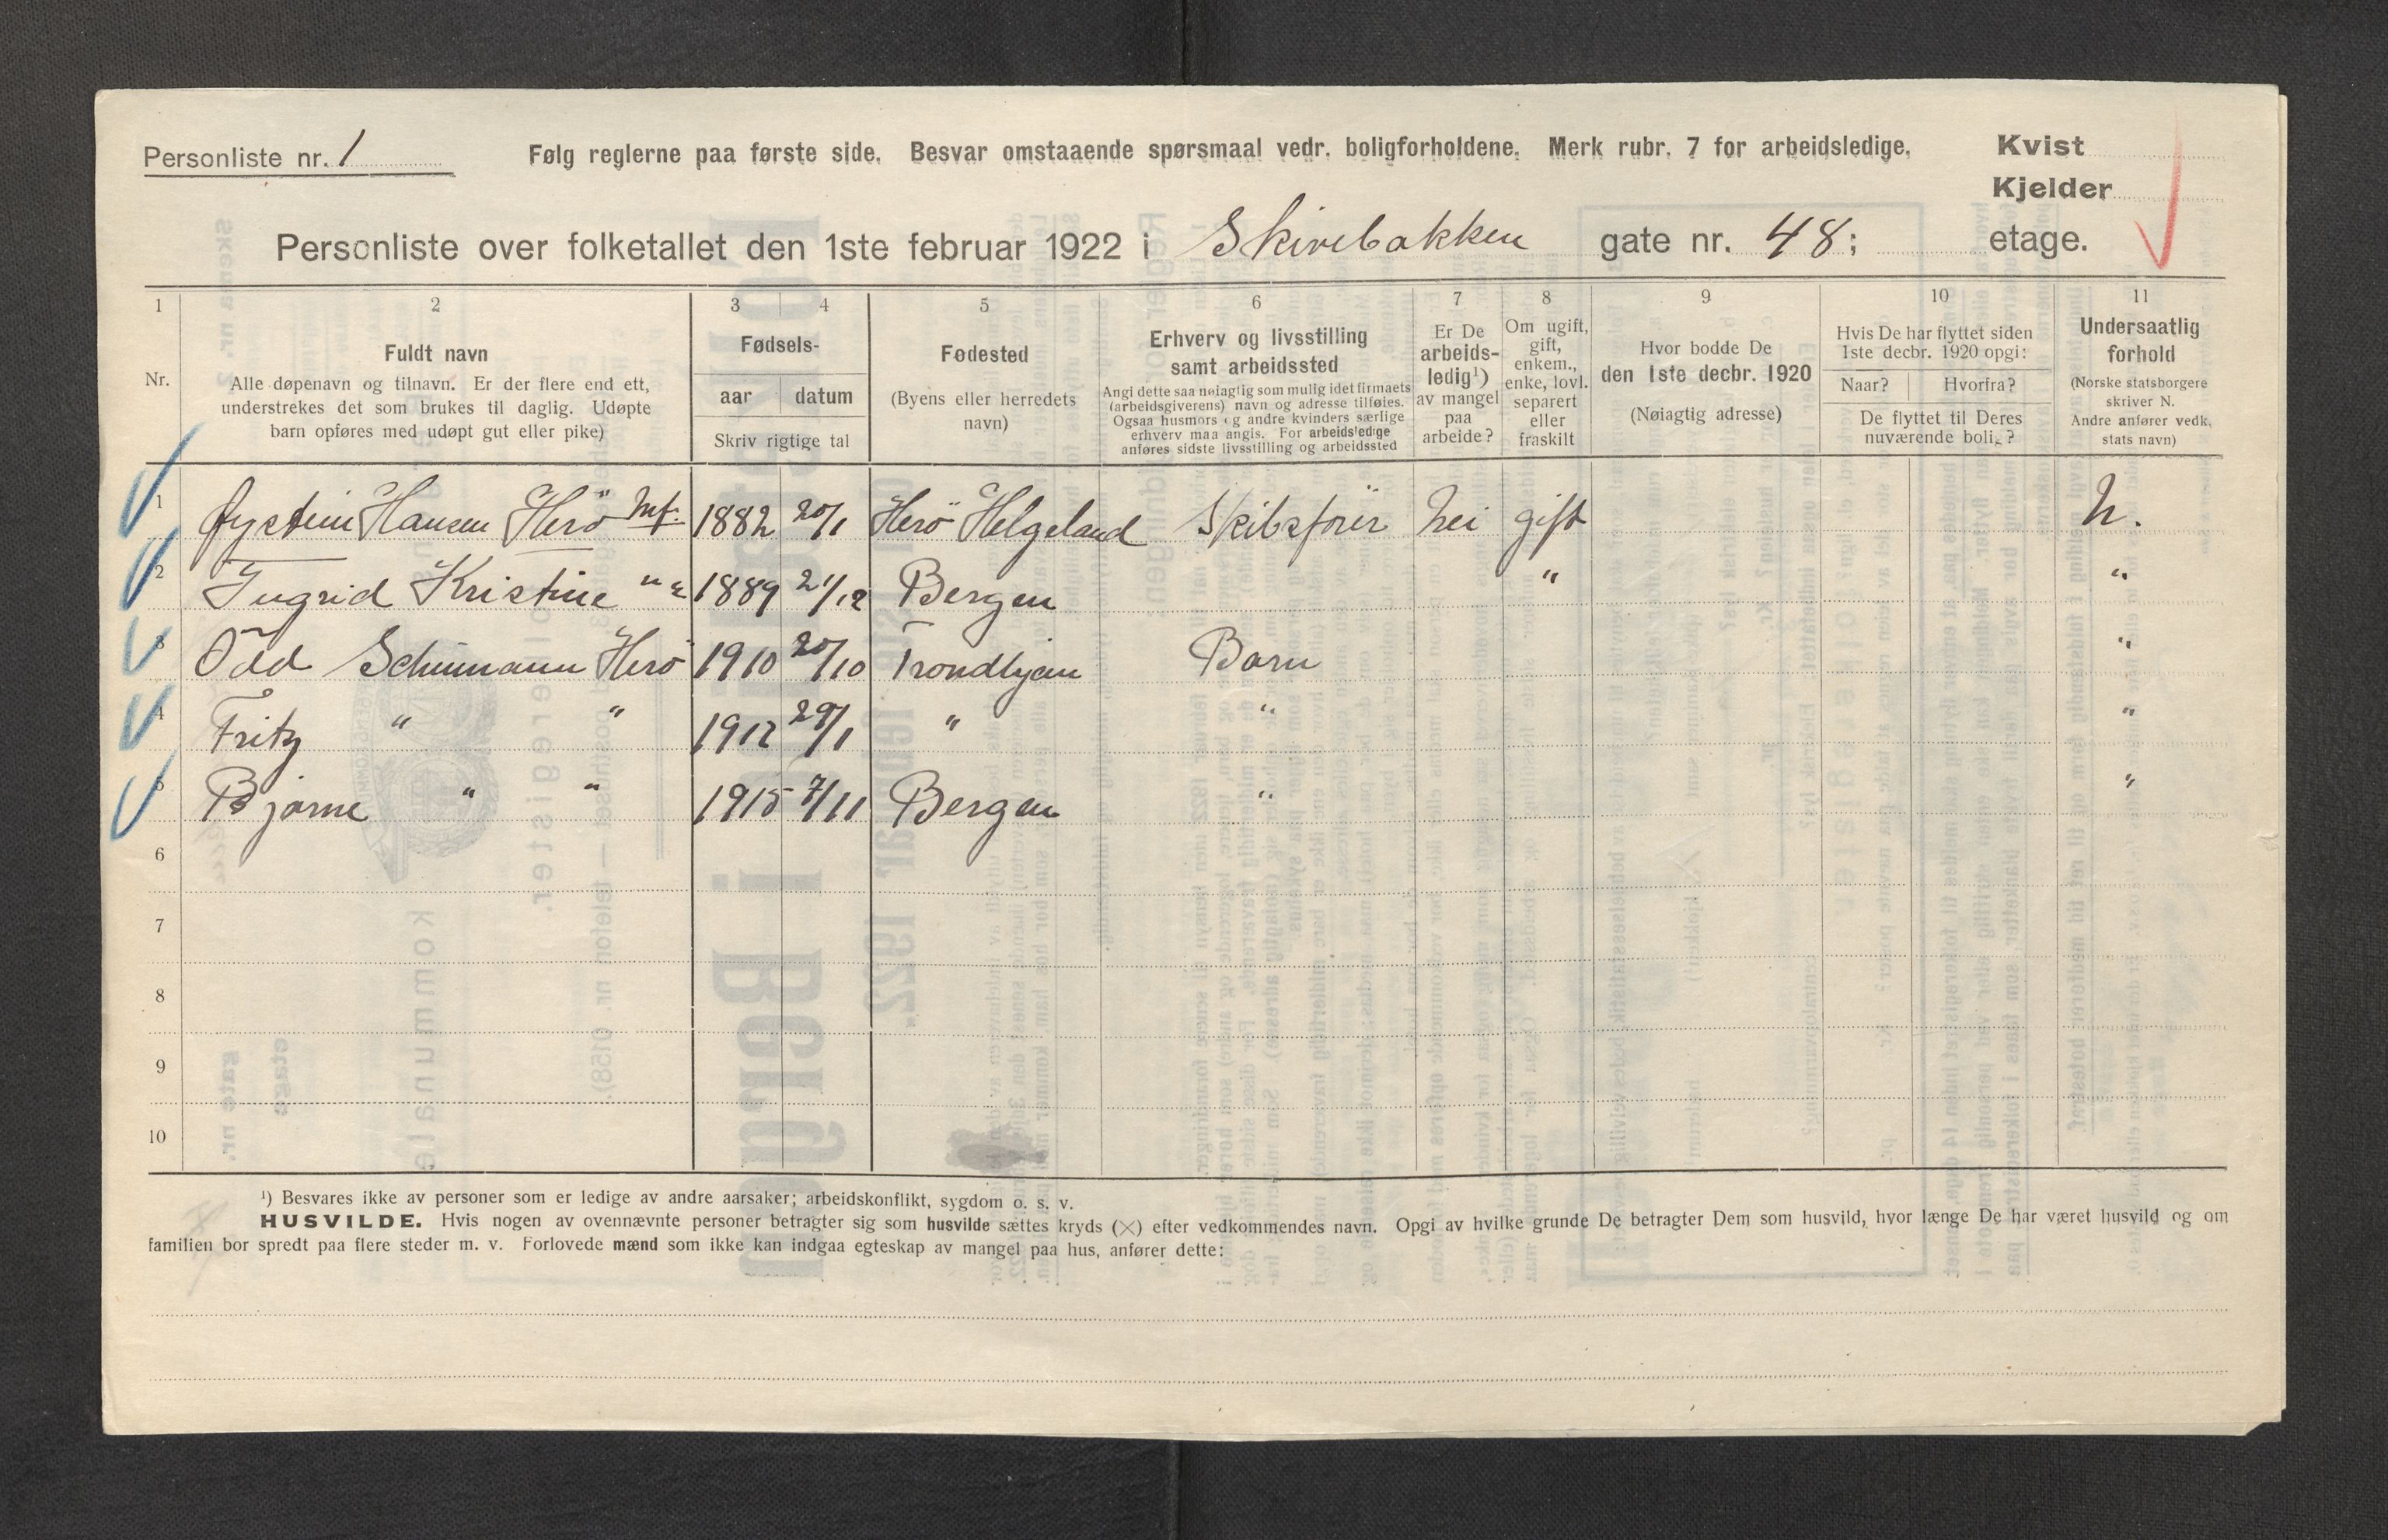 Personliste nr. 1
Følg reglerne paa første side. Besvar omstaaende spørsmaal vedr. boligforholdene. Merk rubr. 7 for arbeidsledige.
Kvist
Kjelder
Personliste over folketallet den 1ste februar 1922 i Skivebakken gate nr. 48; etage.
1 2 3 4 5 6 7 8 9 10 11
Nr.
Fuldt navn
Alle døpenavn og tilnavn. Er der flere end ett,
understrekes det som brukes til daglig. Udøpte
barn opføres med udøpt gut eller pike)
Fødsels-
aar datum
Skriv rigtige tal
Fødested
(Byens eller herredets
navn)
Erhverv og livsstilling
samt arbeidssted
Angi dette saa nøiagtig som mulig idet firmaets
(arbeidsgiverens) navn og adresse tilføies.
Ogsaa husmors og andre kvinders særlige
erhverv maa angis. For arbeidsledige
anføres sidste livsstilling og arbeidssted
Er De
arbeids-
ledig¹)
av mangel
paa
arbeide?
Om ugift,
gift,
enkem.,
enke, lovl.
separert
eller
fraskilt
Hvor bodde De
den 1ste decbr. 1920
(Nøiagtig adresse)
Hvis De har flyttet siden
1ste decbr. 1920 opgi:
Naar? Hvorfra?
De flyttet til Deres
nuværende bolig?
Undersaatlig
forhold
(Norske statsborgere
skriver N.
Andre anfører vedk.
stats navn)
1 Øystein Hansen Herö 1882 20/1 Herö Helgeland Skibsförer Nei gift N.
2 Ingrid Kristine " " 1889 21/12 Bergen " "
3 Odd Schumann Herö 1910 20/10 Trondhjem Barn "
4 Fritz " " 1912 29/1 " " "
5 Bjarne " " 1915 7/11 Bergen " "
6
7
8
9
10
¹) Besvares ikke av personer som er ledige av andre aarsaker; arbeidskonflikt, sygdom o. s. v.
HUSVILDE. Hvis nogen av ovennævnte personer betragter sig som husvilde sættes kryds (×) efter vedkommendes navn. Opgi av hvilke grunde De betragter Dem som husvild, hvor længe De har været husvild og om
familien bor spredt paa flere steder m. v. Forlovede mænd som ikke kan indgaa egteskap av mangel paa hus, anfører dette: